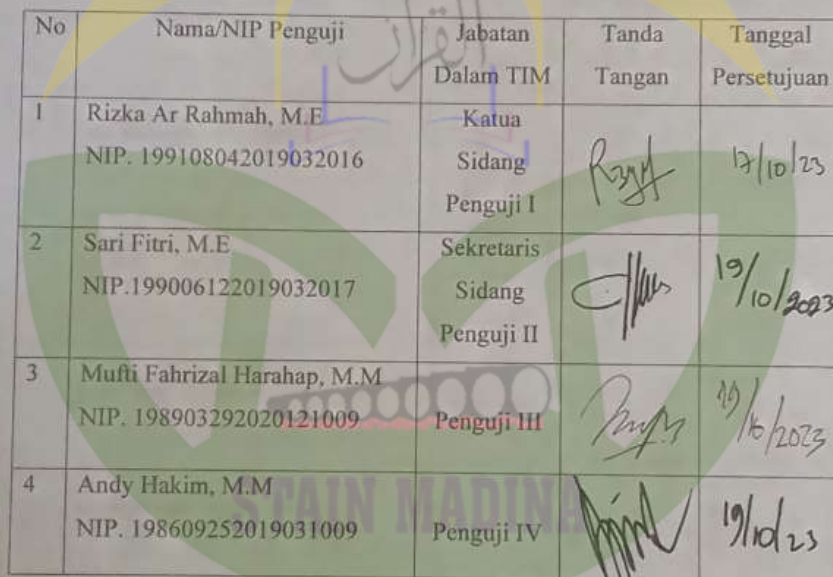 القرآن
No Nama/NIP Penguji Jabatan Dalam TIM Tanda Tangan Tanggal Persetujuan
1 Rizka Ar Rahmah, M.E Katua
NIP. 199108042019032016 Sidang 17/10/23
Penguji I
2 Sari Fitri, M.E Sekretaris
NIP.199006122019032017 Sidang 19/10/2023
Penguji II
3 Mufti Fahrizal Harahap, M.M
NIP. 198903292020121009 Penguji III 19/10/2023
4 Andy Hakim, M.M
NIP. 198609252019031009 Penguji IV 19/10/23
STAIN MADINA